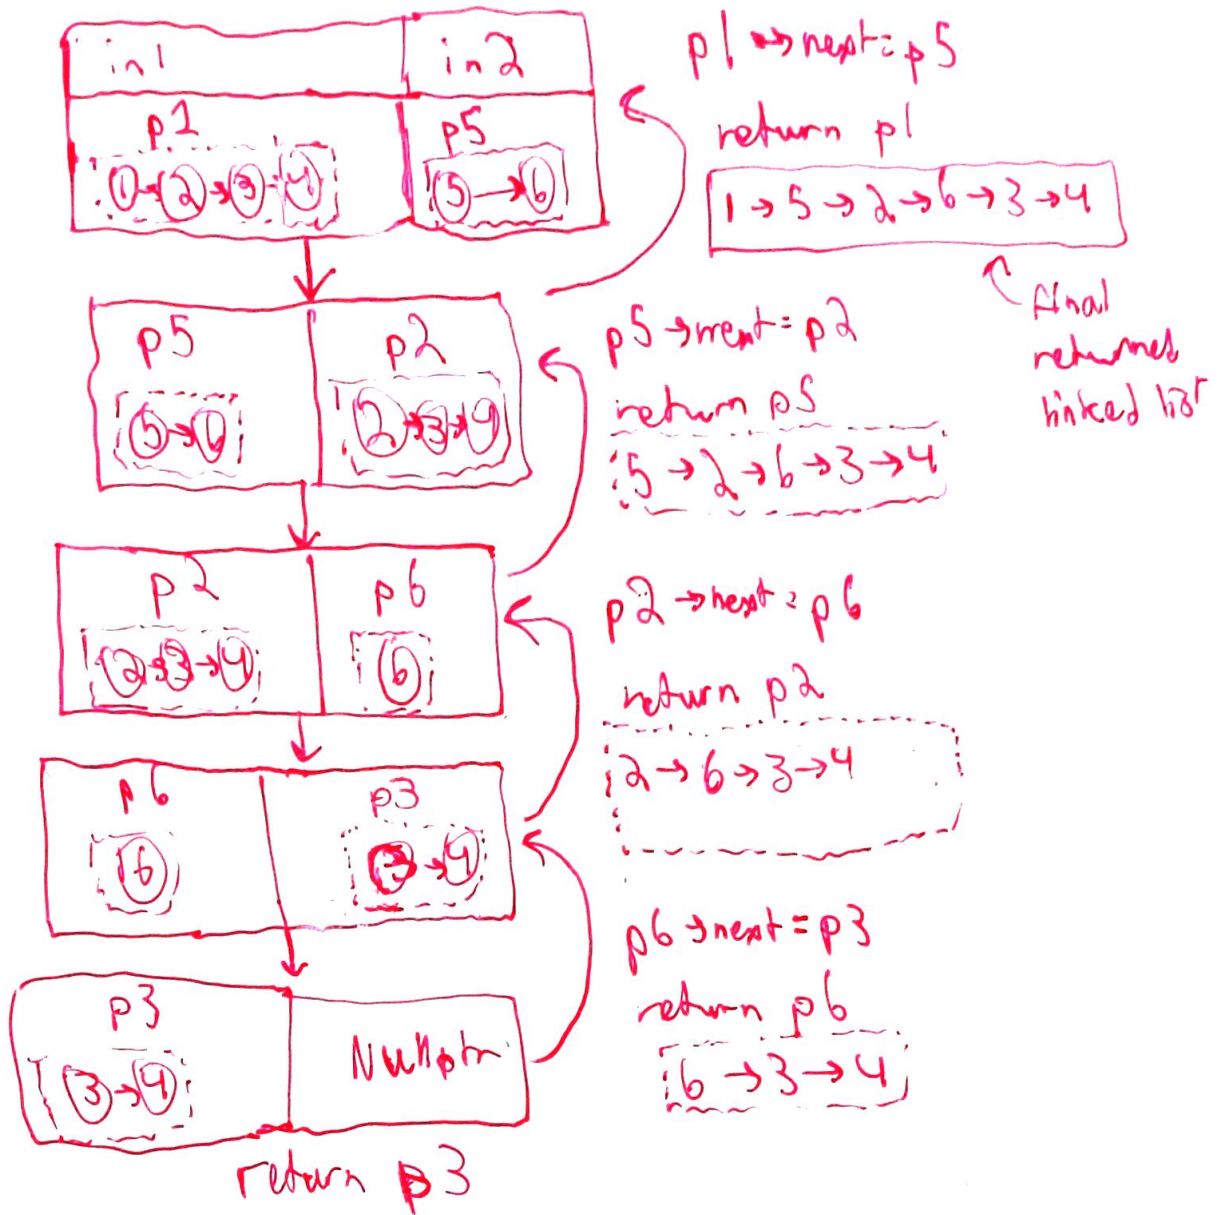 in1 in2
p1 p5
1 → 2 → 3 → 4 5 → 6
p1 → next = p5
return p1
1 → 5 → 2 → 6 → 3 → 4
final
returned
linked list
p5 p2
5 → 6 2 → 3 → 4
p5 → next = p2
return p5
5 → 2 → 6 → 3 → 4
p2 p6
2 → 3 → 4 6
p2 → next = p6
return p2
2 → 6 → 3 → 4
p6 p3
6 3 → 4
p6 → next = p3
return p6
6 → 3 → 4
p3 Nullptr
3 → 4
return p3